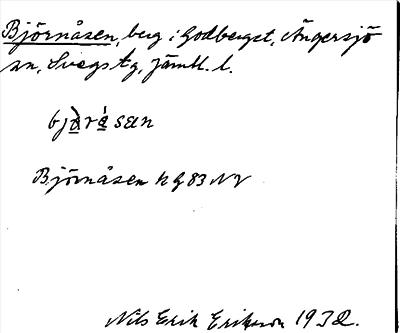 Björnåsen, berg i Godbergst, Ängersjö
sn, Svegs tg, Jämtl. l.
bjòṛásan
Björnåsen h g 83 NV
Nils Erik Erikson 1932.